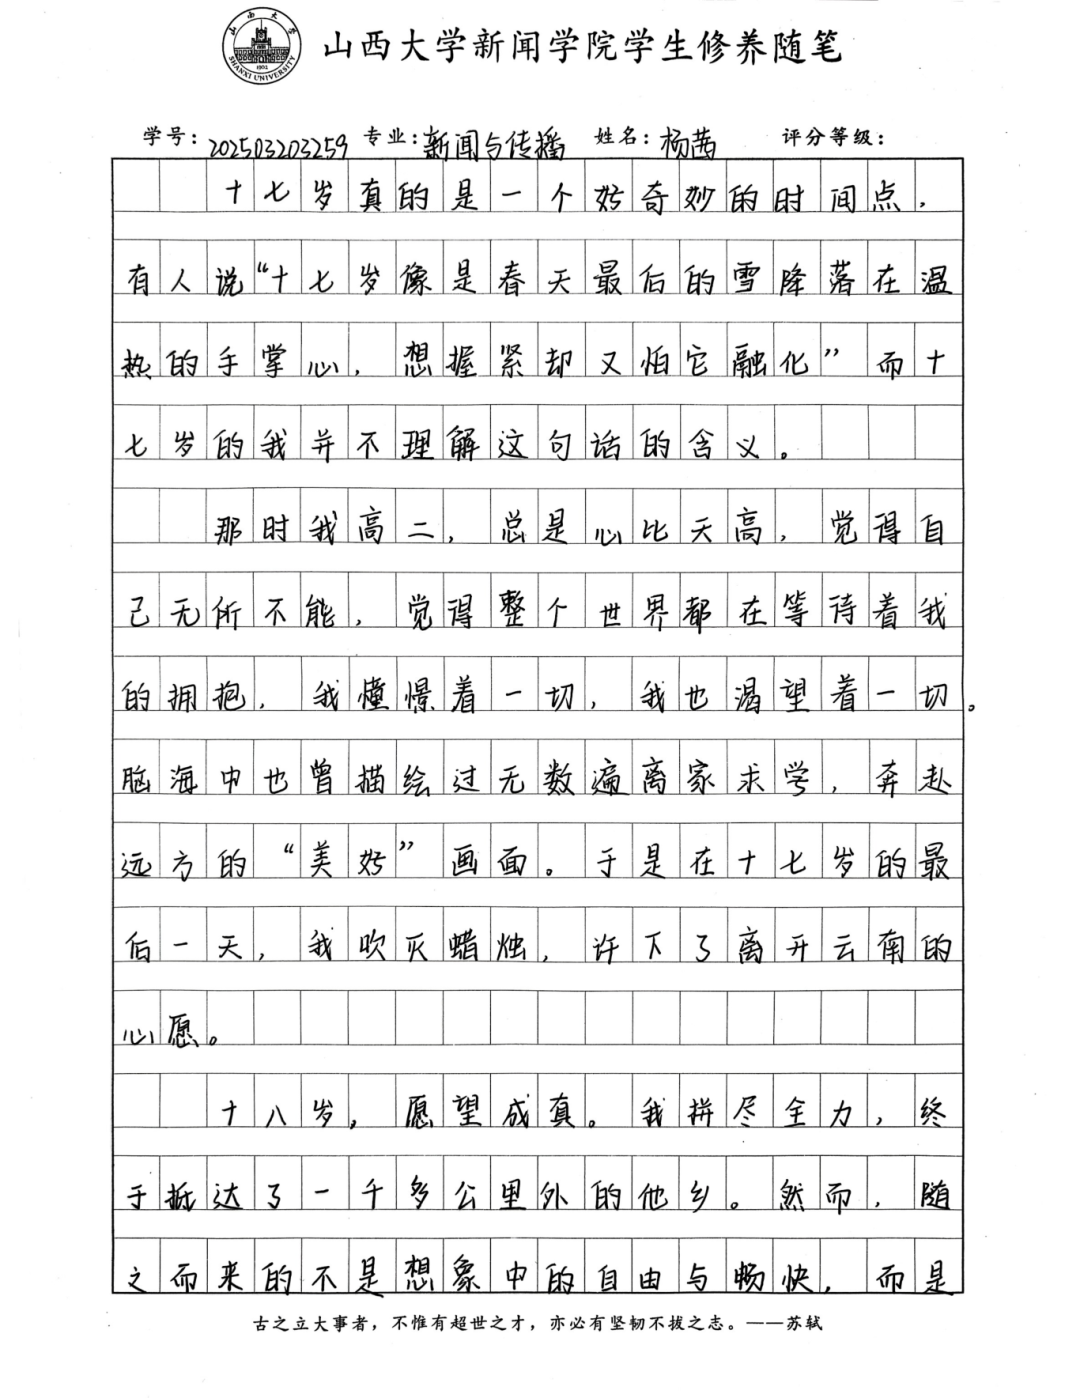 山西大学
SHANXI UNIVERSITY
1902
山西大学新闻学院学生修养随笔
学号：202503203259 专业：新闻与传播 姓名：杨茜 评分等级：
十七岁真的是一个好奇妙的时间点，
有人说“十七岁像是春天最后的雪降落在温
热的手掌心，想握紧却又怕它融化”而十
七岁的我并不理解这句话的含义。
那时我高二，总是心比天高，觉得自
己无所不能，觉得整个世界都在等待着我
的拥抱，我憧憬着一切，我也渴望着一切。
脑海中也曾描绘过无数遍离家求学，奔赴
远方的“美好”画面。于是在十七岁的最
后一天，我吹灭蜡烛，许下了离开云南的
心愿。
十八岁，愿望成真。我拼尽全力，终
于抵达了一千多公里外的他乡。然而，随
之而来的不是想象中的自由与畅快，而是
古之立大事者，不惟有超世之才，亦必有坚韧不拔之志。——苏轼